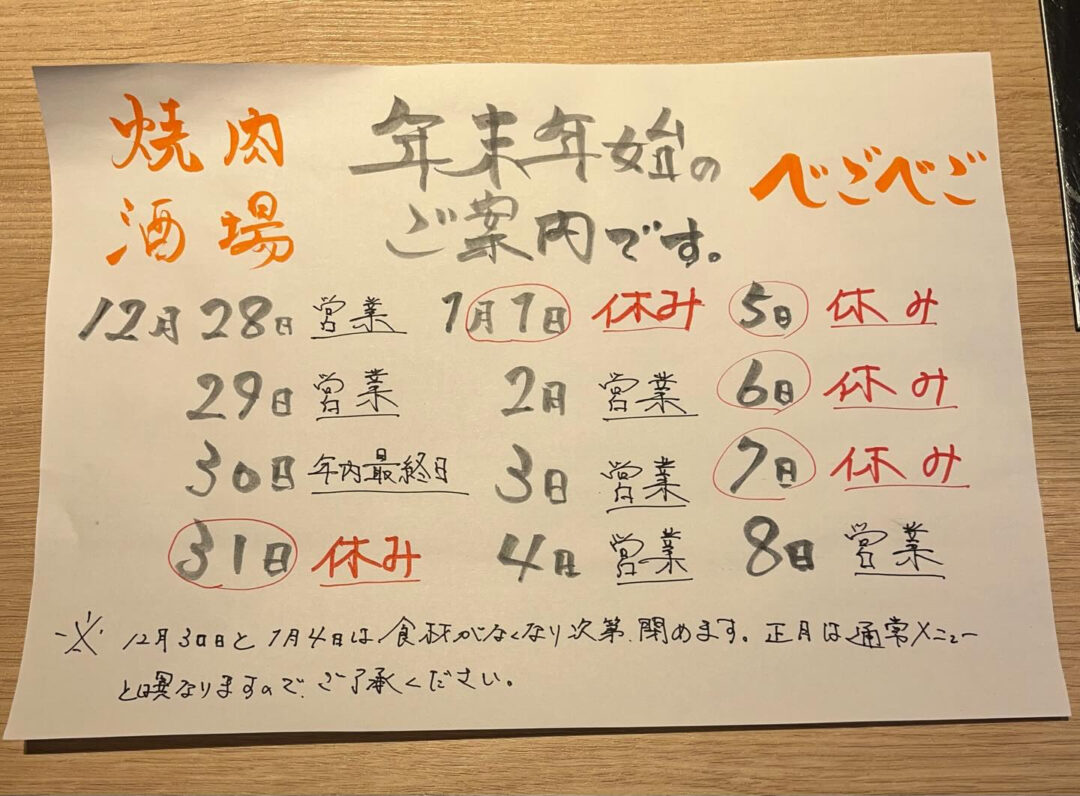 焼肉
酒場
年末年始の
ご案内です。
べごべご
12月28日 営業
29日 営業
30日 年内最終日
31日 休み
1月1日 休み
2日 営業
3日 営業
4日 営業
5日 休み
6日 休み
7日 休み
8日 営業
※ 12月30日と1月4日は食材がなくなり次第、閉めます。正月は通常メニュー
と異なりますので、ご了承ください。